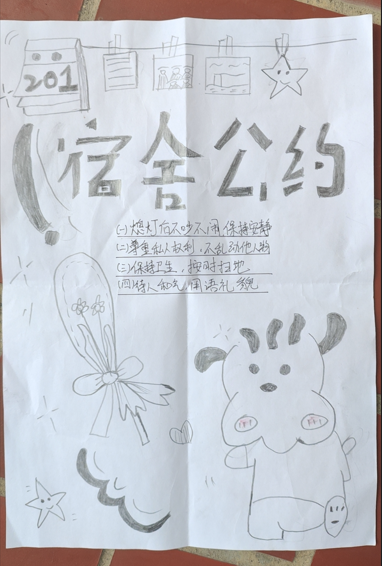 201
宿舍公约
(一)熄灯后不吵不闹,保持安静
(二)尊重私人权利,不乱动他人物
(三)保持卫生,按时扫地
(四)待人和气,用语礼貌